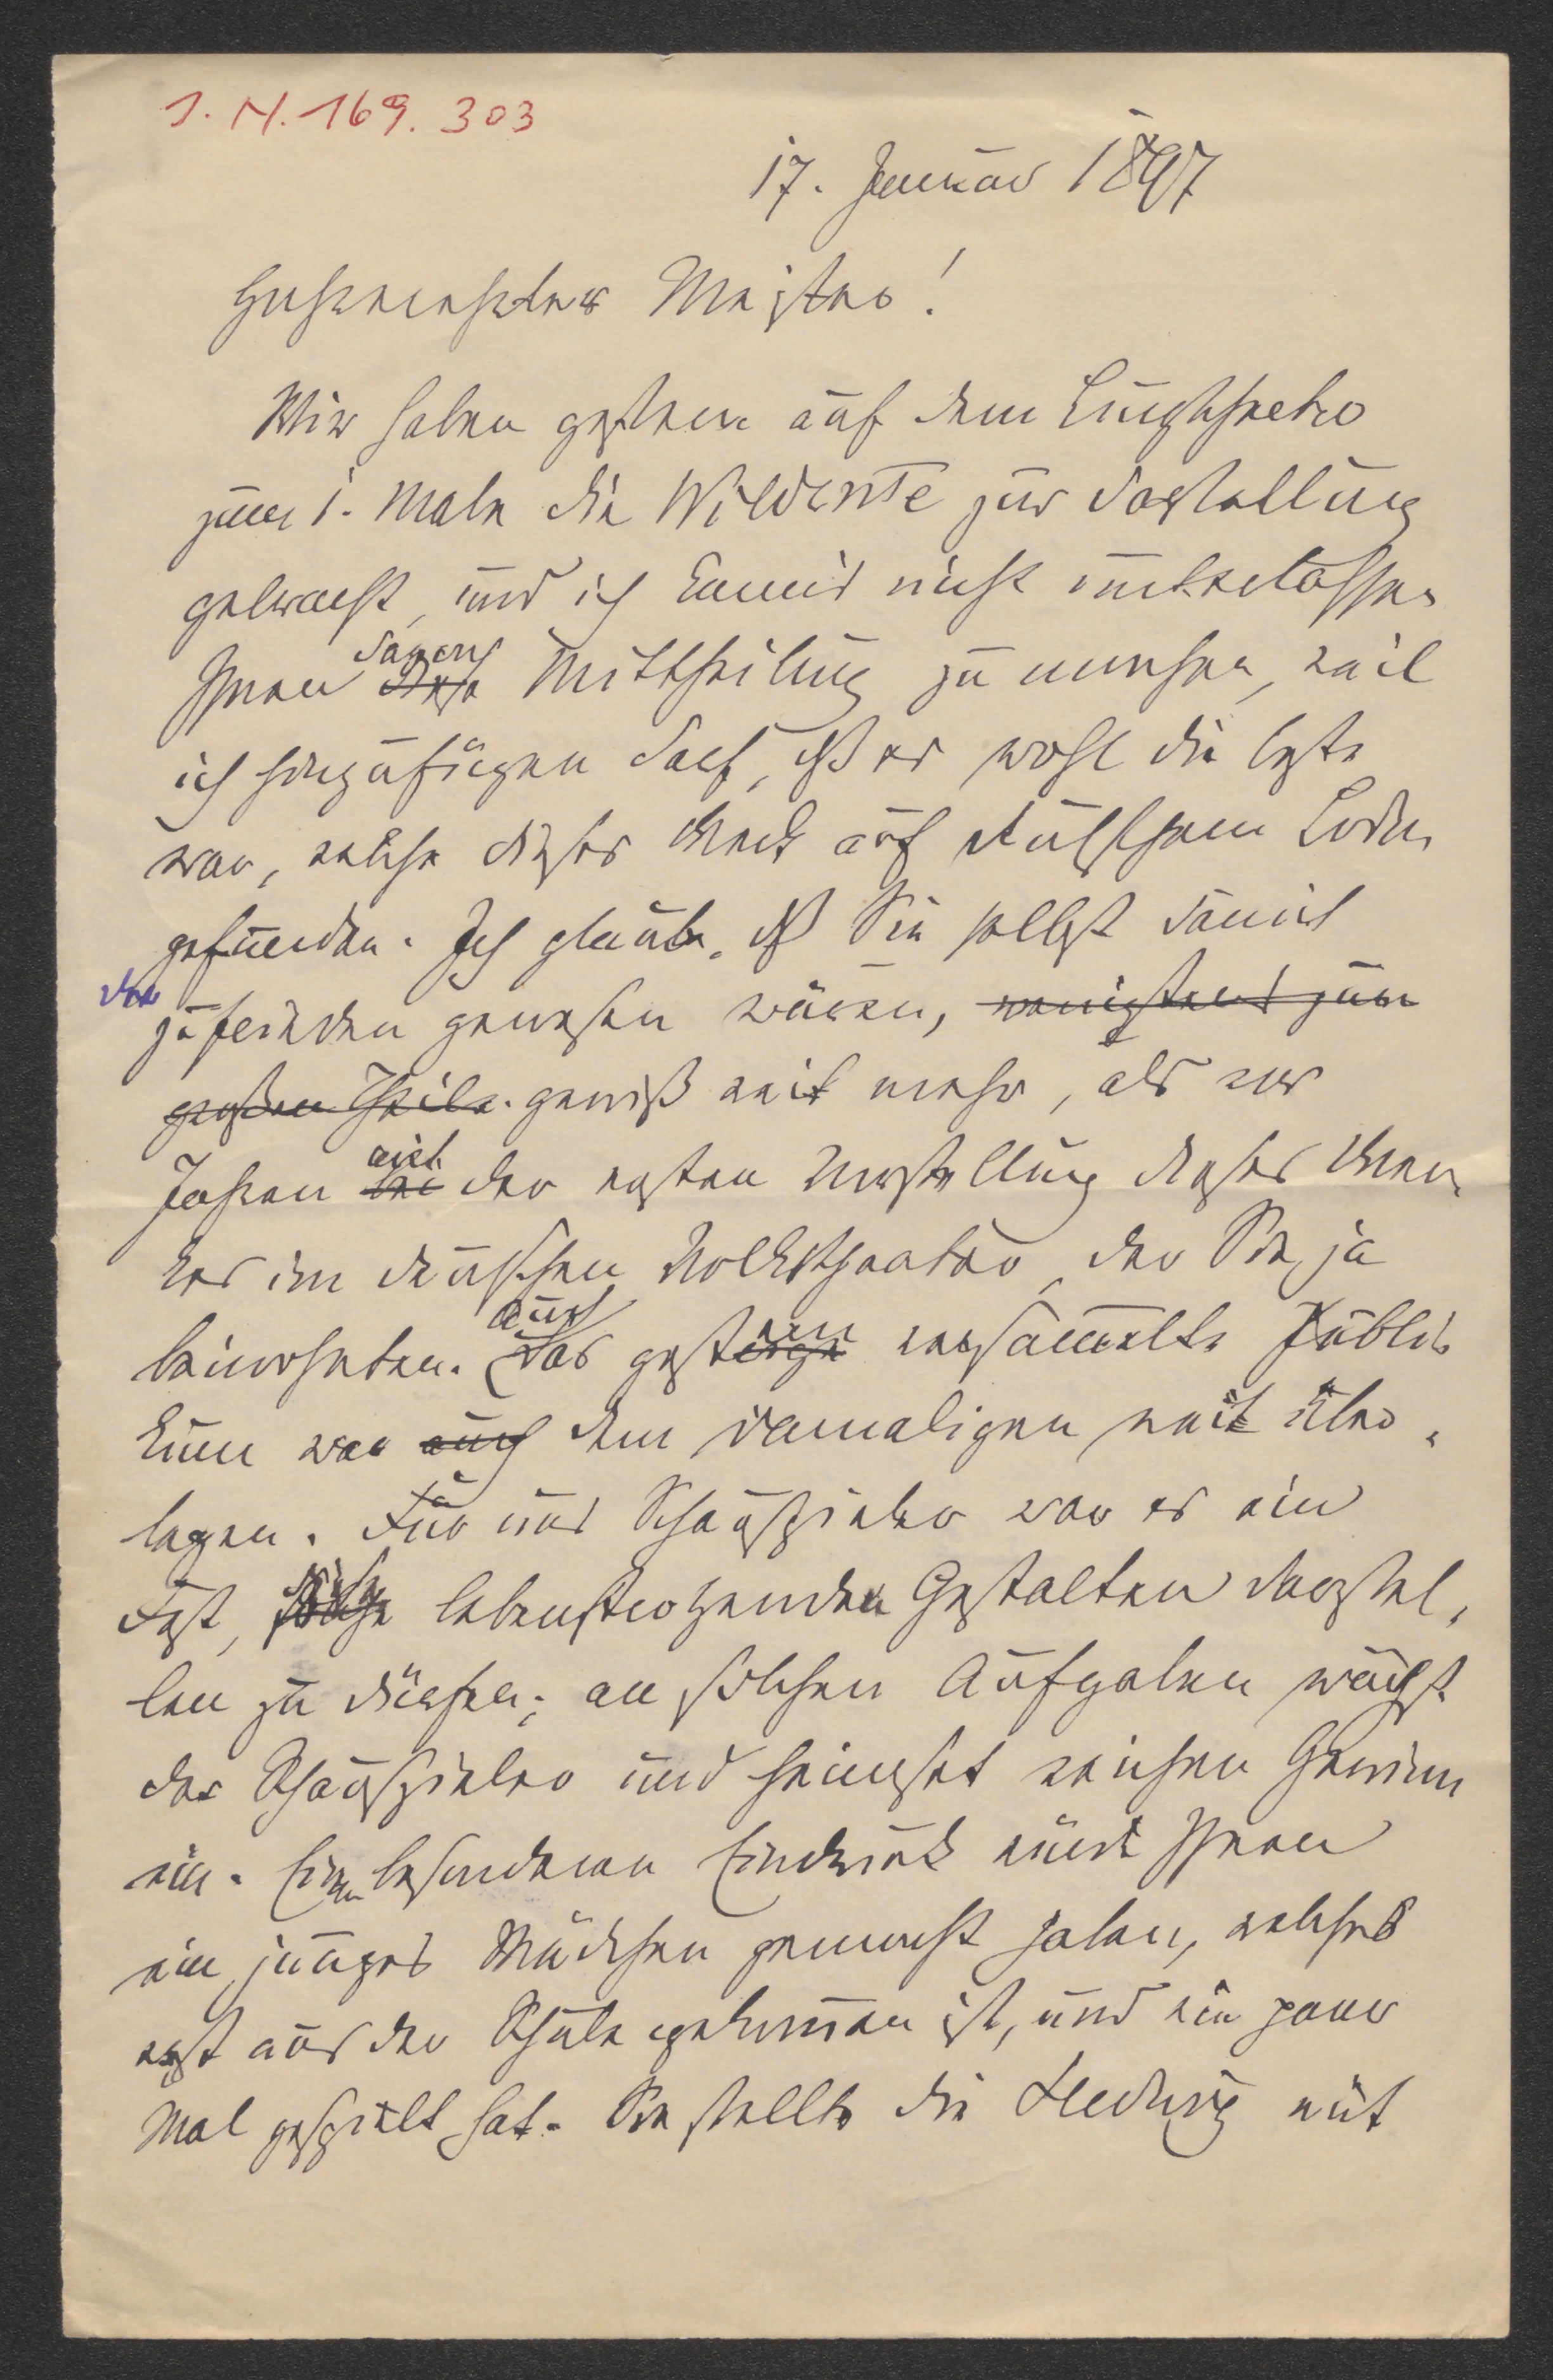 I. N. 169.303
17. Januar 1897
Hochverehrter Meister!
Wir haben gestern auf dem Burgtheater
zum 1. Male die Wildente zur Darstellung
gebracht, und ich kann's nicht unterlassen
Ihnen davon diese Mittheilung zu machen, weil
ich hinzufügen darf, dß es wohl die beste
war, welche dieses Werk auf deutschem Boden
gefunden. Ich glaube, dß Sie selbst damit
zufrieden gewesen wären, wenigstens zum
großen Theile. gewiß weit mehr, als vor
Jahren mit bei der ersten Vorstellung dieses Wer-
kes im deutschen Volkstheater, der Sie ja
beiwohnten. Auch das gestern versammelte Publi-
kum war auch dem damaligen weit über-
legen. Für uns Schauspieler war es ein
Fest, solche lebenstrotzenden Gestalten darstel-
len zu dürfen; an solchen Aufgaben wächst
der Schauspieler und heimset reichen Gewinn
ein. Einen besonderen Eindruck würde Ihnen
ein junges Mädchen gemacht haben, welches
erst aus der Schule gekommen ist, und ein paar
Mal gespielt hat. Sie stellte die Hedwig mit